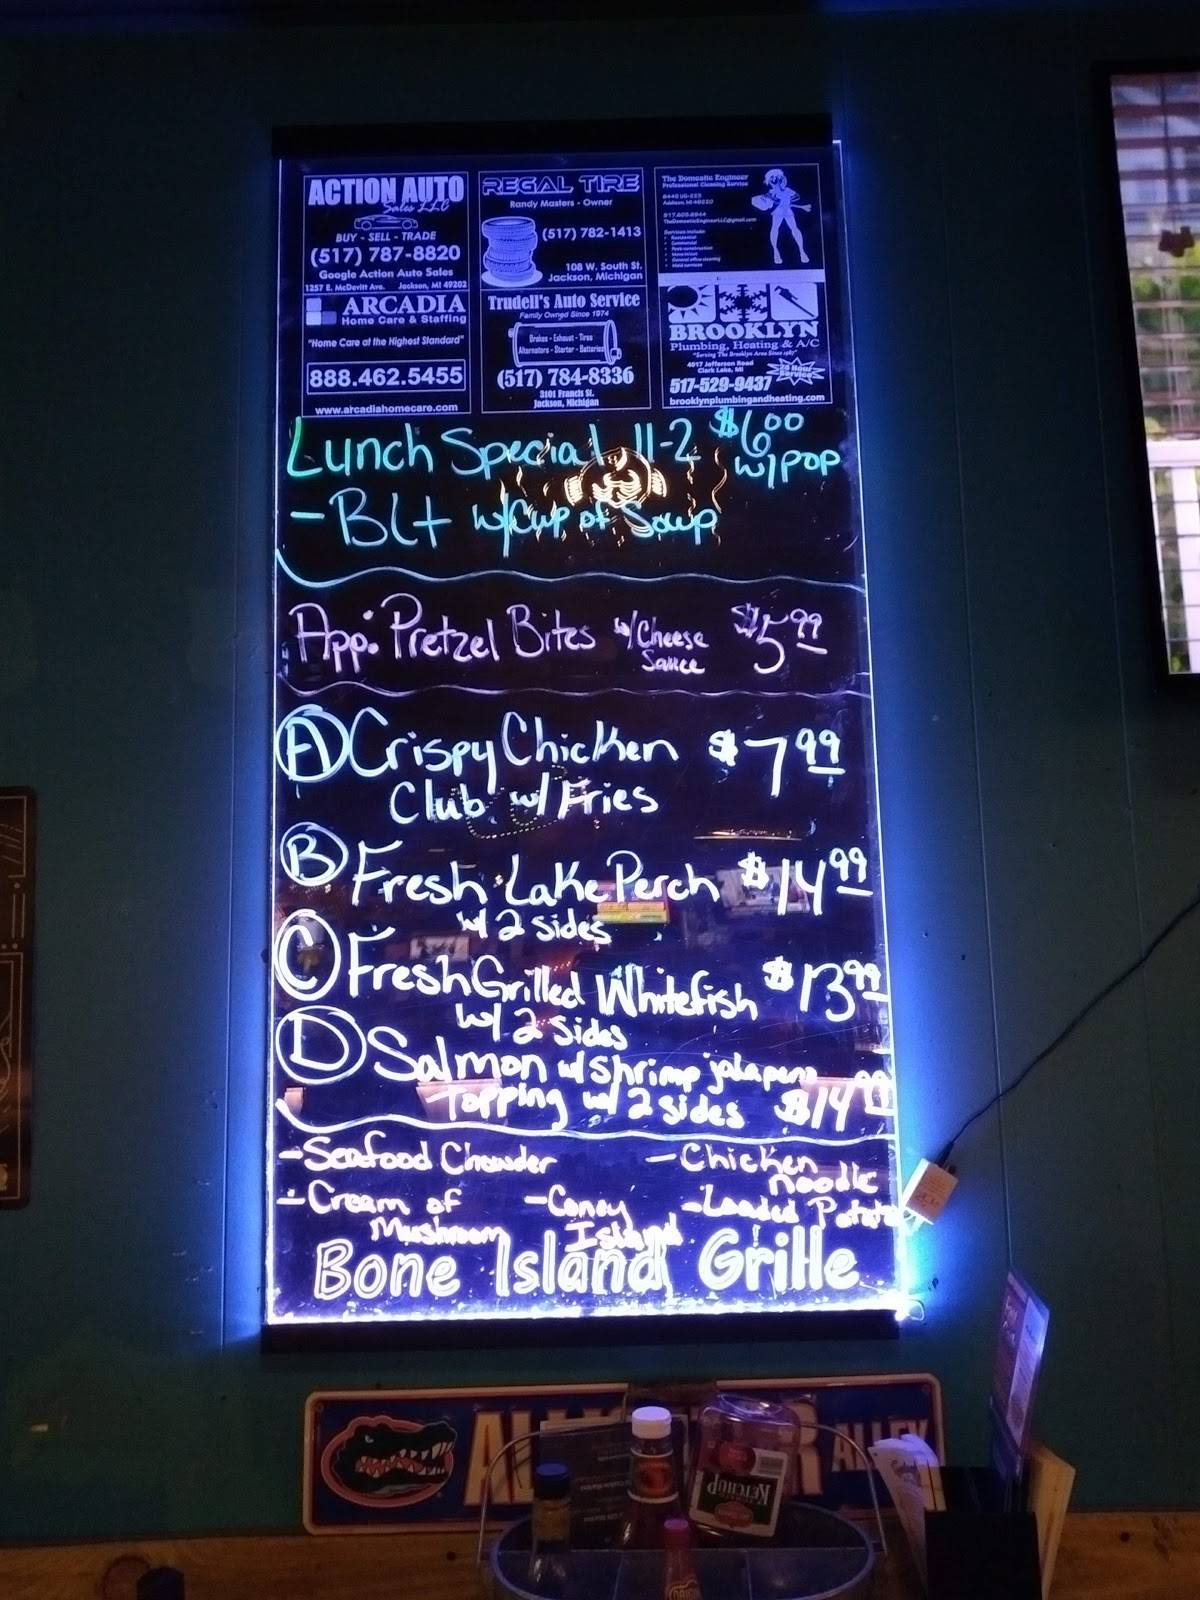 ACTION AUTO
Sales LLC
BUY - SELL - TRADE
(517) 787-8820
Google Action Auto Sales
1257 E. McDevitt Ave. Jackson, MI 49202
ARCADIA
Home Care & Staffing
"Home Care of the Highest Standard"
888.462.5455
www.arcadiahomecare.com
REGAL TIRE
Randy Masters - Owner
(517) 782-1413
108 W. South St.
Jackson, Michigan
Trudell's Auto Service
Family Owned Since 1974
Brakes - Exhaust - Tires
Alternators - Starter - Batteries
(517) 784-8336
3101 Francis St.
Jackson, Michigan
The Domestic Engineer
Professional Cleaning Service
Addison, MI 49220
517.605.8944
TheDomesticEngineerLLC@gmail.com
Services include:
Residential
Commercial
Post-construction
Move in/out
General office cleaning
Maid services
BROOKLYN
Plumbing, Heating & A/C
"Serving The Brooklyn Area Since 1987"
4017 Jefferson Road
Clark Lake, MI
24 Hour
Service
517-529-9437
brooklynplumbingandheating.com
Lunch Special 11-2 $6.00
w/ pop
- BLt w/Cup of Soup
App: Pretzel Bites w/Cheese Sauce $5.99
A Crispy Chicken $7.99
Club w/ Fries
B Fresh Lake Perch $14.99
w/ 2 sides
C Fresh Grilled Whitefish $13.99
w/ 2 sides
D Salmon w/ shrimp jalapeno
topping w/ 2 sides $14.99
- Seafood Chowder - Chicken noodle
- Cream of Mushroom - Coney Island - Loaded Potato
Bone Island Grille
ALLEY
KETCHUP